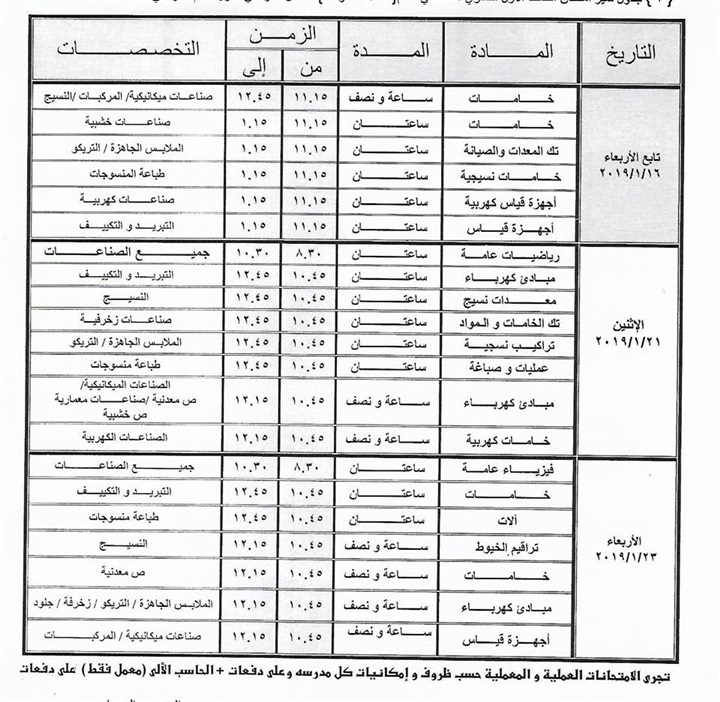 التاريخ المــــادة المــدة الزمــن من إلى التخصصـــات
تابع الأربعاء
٢٠١٩/١/١٦
خـــامــات ســاعة و نصف ١١.١٥ ١٢.٤٥ صناعـات ميكانيكية/ المركبـات /النسيج
خـــامــات ساعتــــان ١١.١٥ ١.١٥ صناعـــات خشبية
تك المعدات والصيانة ساعتــــان ١١.١٥ ١.١٥ الملابس الجاهزة / التريكو
خــامـات نسيجية ساعتــــان ١١.١٥ ١.١٥ طباعة المنسوجات
أجهزة قياس كهربية ساعتــــان ١١.١٥ ١.١٥ صناعـــات كهربية
أجهـــزة قيـاس ساعتــــان ١١.١٥ ١.١٥ التبريـد و التكييف
الإثنين
٢٠١٩/١/٢١
رياضيــات عـامـة ساعتــــان ٨.٣٠ ١٠.٣٠ جميــــع الصناعــــات
مبـادئ كهربــاء ساعتــــان ١٠.٤٥ ١٢.٤٥ التبريـد و التكييف
معــدات نسيج ساعتــــان ١٠.٤٥ ١٢.٤٥ النسيــج
تك الخامات و المـواد ساعتــــان ١٠.٤٥ ١٢.٤٥ صناعـــات زخرفية
تراكيـب نسجيـة ساعتــــان ١٠.٤٥ ١٢.٤٥ الملابس الجاهزة / التريكو
عمليات و صباغة ساعتــــان ١٠.٤٥ ١٢.٤٥ طباعة منسوجات
مبـادئ كهربــاء ســاعة و نصف ١٠.٤٥ ١٢.١٥ الصناعات الميكانيكية/
ص معدنية /صناعـــات معمارية
ص خشبية
خـامـات كهربية ســاعة و نصف ١٠.٤٥ ١٢.١٥ الصناعـات الكهربية
الأربعاء
٢٠١٩/١/٢٣
فيزيــاء عامـة ساعتــــان ٨.٣٠ ١٠.٣٠ جميــــع الصناعــــات
خـــامــات ساعتــــان ١٠.٤٥ ١٢.٤٥ التبريـد و التكييف
ألات ساعتــــان ١٠.٤٥ ١٢.٤٥ طباعة منسوجات
تراقيم الخيوط ســاعة و نصف ١٠.٤٥ ١٢.١٥ النسيــج
خـــامــات ســاعة و نصف ١٠.٤٥ ١٢.١٥ ص معدنية
مبـادئ كهربــاء ســاعة و نصف ١٠.٤٥ ١٢.١٥ الملابس الجاهزة / التريكو / زخرفة / جلود
أجهـــزة قيـاس ســاعة و نصف ١٠.٤٥ ١٢.١٥ صناعات ميكانيكية / المركبــات
تجرى الامتحانات العملية و المعملية حسب ظروف و إمكانيات كل مدرسه وعلى دفعات + الحاسب الألى (معمل فقط) على دفعات